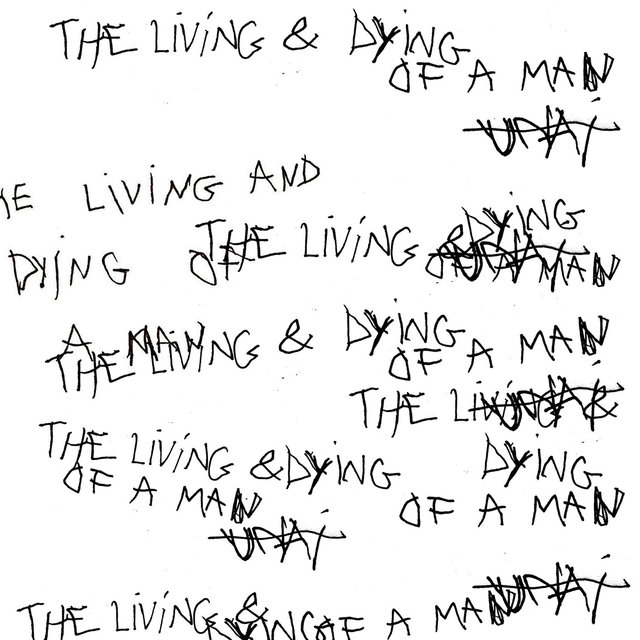 THE LIVING & DYING
OF A MAN
UDAY
LIVING AND
THE LIVING & DYING
DYING OF
OF A MAN
A MAN
THE LIVING & DYING
OF A MAN
THE LIVING &
THE LIVING & DYING
DYING
OF A MAN
OF A MAN
THE LIVING &
OF A MAN